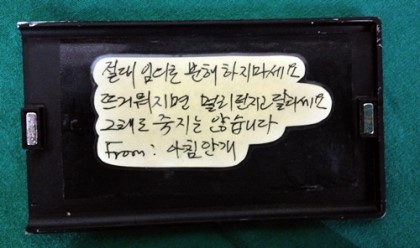 절대 임의로 분해하지마세요
뜨거워지면 멀리던지고 달아나세요
그래도 죽지는 않습니다
From: 아침안개